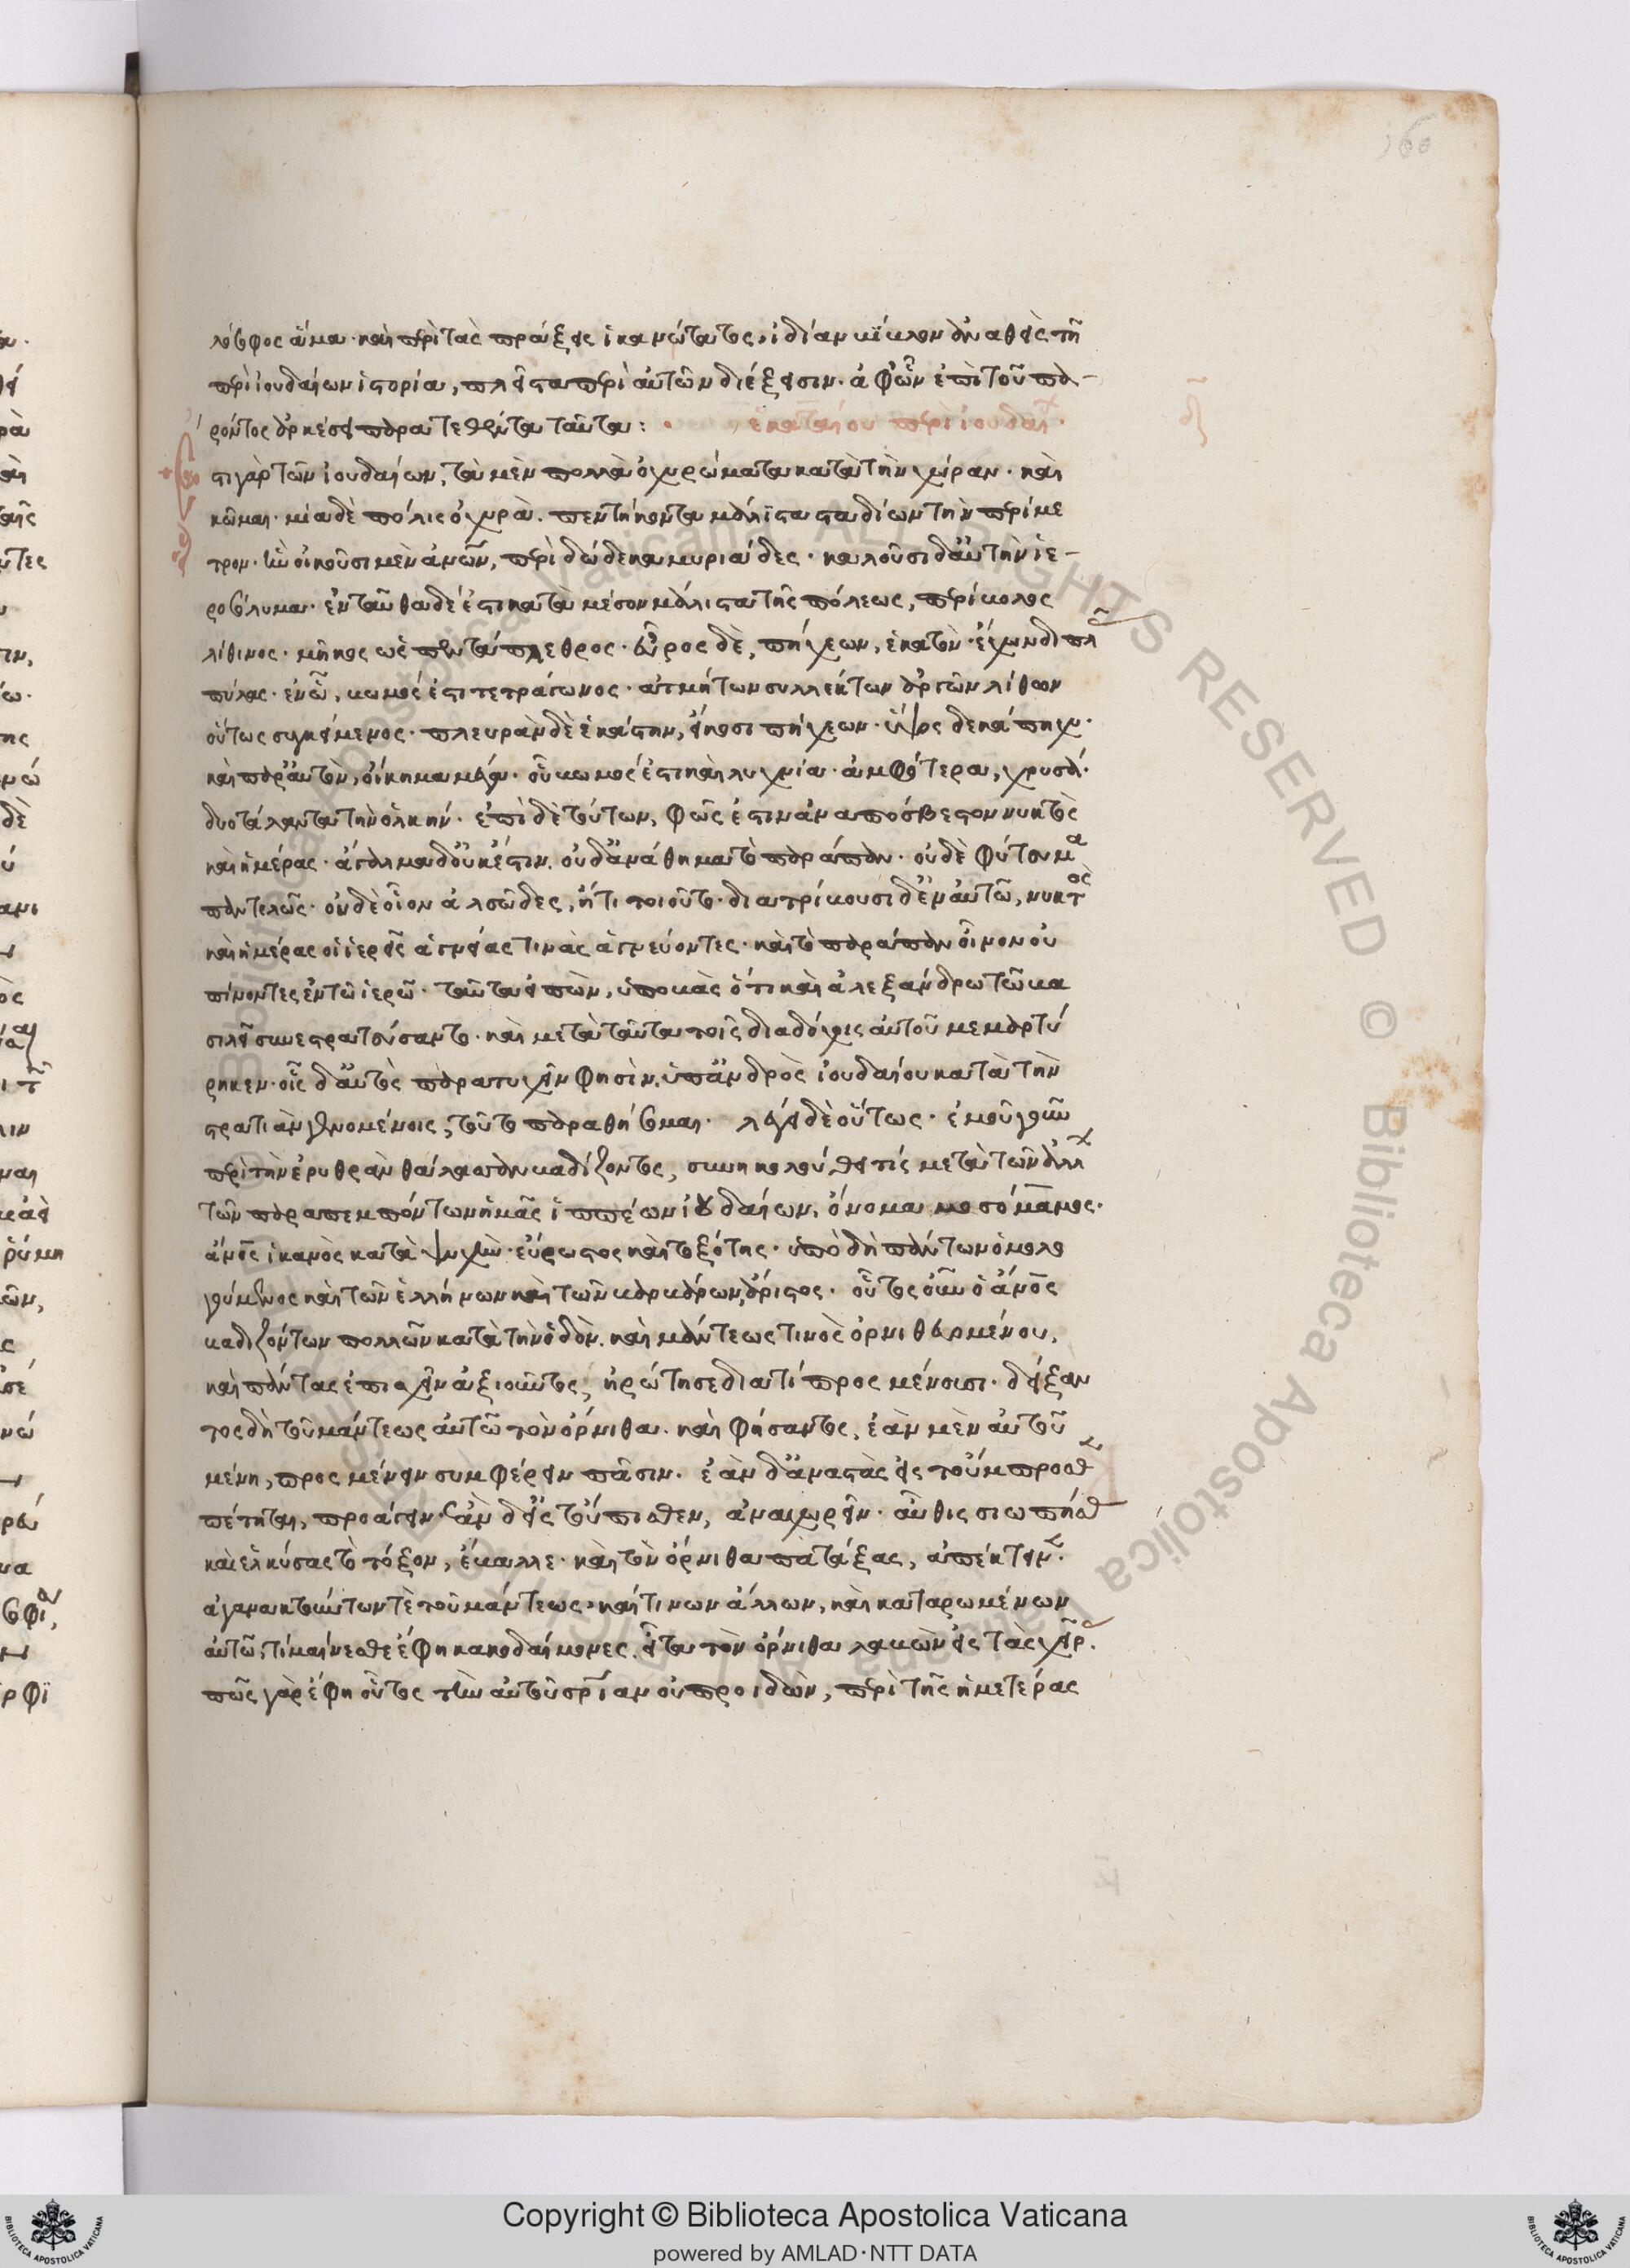 160
λόσοφος ἅμα καὶ περὶ τὰς πράξεις ἱκανώτατος, ἰδίαν βίβλον ἀναθεὶς τῆ
περὶ ἰουδαίων ἱστορία, πλεῖστα περὶ αὐτῶν διέξεισιν. ἀφ' ὧν ἐπὶ τοῦ πα-
ρόντος ἀρκέσει παρατεθέντα ταῦτα:
ἑκαταίου περὶ ἰουδαίων.
ἔστι γὰρ τῶν ἰουδαίων, τὰ μὲν πολλὰ ὀχυρώματα κατὰ τὴν χώραν. καὶ
κῶμαι. μία δὲ πόλις ὀχυρὰ. πεντήκοντα μάλιστα σταδίων τὴν περίμε
τρον. ἣν οἰκοῦσι μὲν ἀνων, περὶ δώδεκα μυριάδες. καλοῦσι δ' αὐτὴν ἱε-
ροσόλυμα. ἐνταῦθα δέ ἐστι κατὰ μέσον μάλιστα τῆς πόλεως, περίβολος
λίθινος. μῆκος ὡς πεντάπλεθρος. εὖρος δὲ, πήχεων, ἑκατὸν. ἔχων διπλᾶς
πύλας. ἐν ᾧ, βωμός ἐστι τετράγωνος. ἀτμήτων συλλέκτων ἀργῶν λίθων
οὕτως συγκείμενος. πλευρὰν δὲ ἑκάστην, εἴκοσι πήχεων. ὕψος δεκάπηχυ.
καὶ παρ' αὐτὸν, οἴκημα μέγα. οὗ βωμός ἐστι καὶ λυχνία. ἀμφότερα, χρυσᾶ.
δύο τάλαντα τὴν ὁλκήν. ἐπὶ δὲ τούτων, φῶς ἐστιν ἀναπόσβεστον νυκτὸς
καὶ ἡμέρας. ἄγαλμα δ' οὐκ ἔστιν. οὐδ' ἀνάθημα τὸ παράπαν. οὐδὲ φύτευμα
παντελῶς. οὐδὲ οἷον ἀλσῶδες, ἤ τι τοιοῦτο. διατρίβουσι δ' ἐν αὐτῶ, νυκτὸς
καὶ ἡμέρας οἱ ἱερεῖς ἁγνείας τινὰς ἁγνεύοντες. καὶ τὸ παράπαν οἶνον οὐ
πίνοντες ἐν τῶ ἱερῶ. ταῦτα εἰπὼν, ὑποβὰς ὅτι καὶ ἀλεξάνδρω τῶ βα
σιλεῖ συνεστρατεύσαντο. καὶ μετὰ ταῦτα τοῖς διαδόχοις αὐτοῦ μεμαρτύ
ρηκεν. οἷς δ' αὐτὸς παρατυχεῖν φησὶν, ὑπ' ἀνδρὸς ἰουδαίου κατὰ τὴν
στρατιὰν γενομένοις, τοῦτο παραθήσομαι. λέγει δὲ οὕτως. ἐμοῦ γοῦν
περὶ τὴν ἐρυθρὰν θάλασσαν βαδίζοντος, συνηκολούθει τίς μετὰ τῶν ἄλλων
τῶν παραπεμπόντων ἡμᾶς ἱππέων ἰουδαίων, ὄνομα μοσόμανος.
ἄνος ἱκανὸς κατὰ ψυχὴν. εὔρωστος καὶ τοξότης. ὑπὸ δὴ πάντων ὁμολο
γούμενος καὶ τῶν ἑλλήνων καὶ τῶν βαρβάρων, ἄριστος. οὗτος οὖν ὁ ἄνος
βαδιζόντων πολλῶν κατὰ τὴν ὁδὸν. καὶ μάντεως τινὸς ὀρνιθευομένου,
καὶ πάντας ἐπισχεῖν ἀξιοῦντος, ἠρώτησε διατί προσμένουσι. δείξαν
τος δὴ τοῦ μάντεως αὐτῶ τὸν ὄρνιθα. καὶ φήσαντος, ἐὰν μὲν αὐτοῦ
μένη, προσμένειν συμφέρειν πᾶσιν. ἐὰν δ' ἀναστὰς εἰς τοὔμπροσθεν
πέτηται, προάγειν. ἐὰν δ' εἰς τοὔπισθεν, ἀναχωρεῖν. αὖθις σιωπήσας
καὶ ἑλκύσας τὸ τόξον, ἔβαλλε. καὶ τὸν ὄρνιθα πατάξας, ἀπέκτεινεν.
ἀγανακτούντων τὲ τοῦ μάντεως. καί τινων ἄλλων, καὶ καταρωμένων
αὐτῶ, τί μαίνεσθε ἔφη κακοδαίμονες. εἶτα τὸν ὄρνιθα λαβὼν εἰς τὰς χεῖρας.
πῶς γὰρ ἔφη οὗτος τὴν αὐτοῦ σρίαν οὐ προιδὼν, περὶ τῆς ἡμετέρας